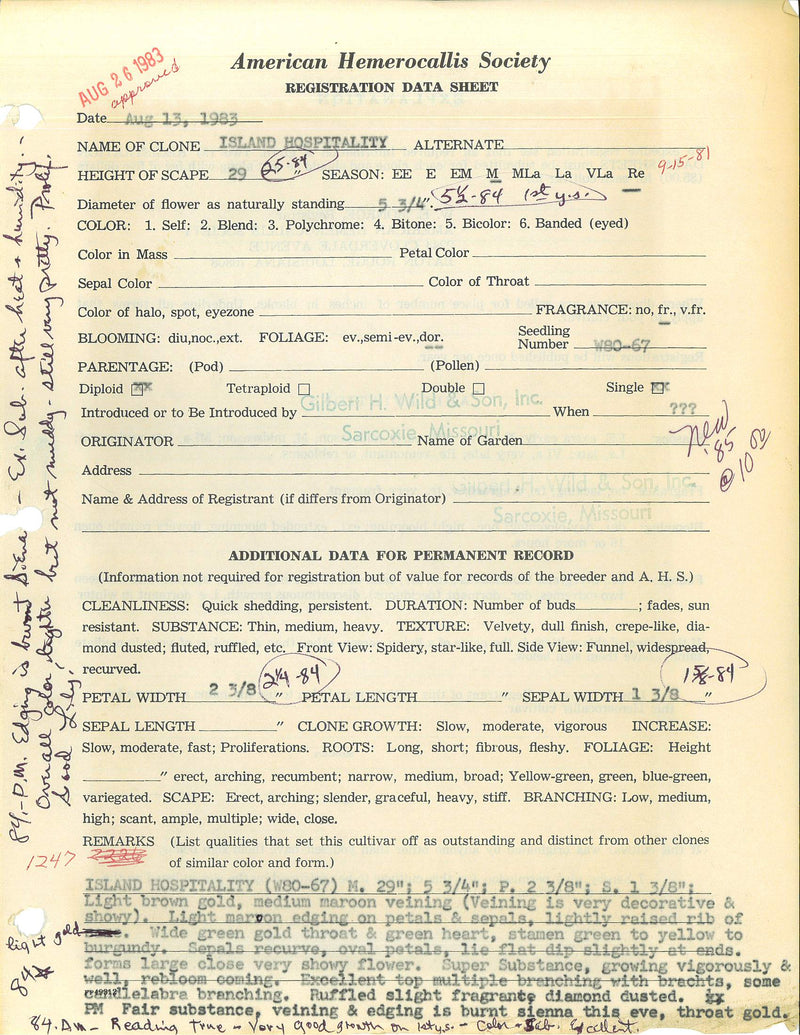 AUG 26 1983
approved
American Hemerocallis Society
REGISTRATION DATA SHEET
Date Aug 13, 1983
NAME OF CLONE ISLAND HOSPITALITY ALTERNATE
9-15-81
HEIGHT OF SCAPE 29 25-84 " SEASON: EE E EM M MLa La VLa Re
Diameter of flower as naturally standing 5 3/4". 5½-84 1st y.s.
COLOR: 1. Self: 2. Blend: 3. Polychrome: 4. Bitone: 5. Bicolor: 6. Banded (eyed)
Color in Mass Petal Color
Sepal Color Color of Throat
Color of halo, spot, eyezone FRAGRANCE: no, fr., v.fr.
BLOOMING: diu,noc.,ext. FOLIAGE: ev.,semi-ev.,dor. Seedling Number W80-67
PARENTAGE: (Pod) (Pollen)
Diploid xx Tetraploid Double Single xx
Introduced or to Be Introduced by Gilbert H. Wild & Son, Inc. When ???
Sarcoxie, Missouri
ORIGINATOR Name of Garden
New '85 @ 10 00
Address
Gilbert H. Wild & Son, Inc.
Name & Address of Registrant (if differs from Originator)
Sarcoxie, Missouri
ADDITIONAL DATA FOR PERMANENT RECORD
(Information not required for registration but of value for records of the breeder and A. H. S.)
CLEANLINESS: Quick shedding, persistent. DURATION: Number of buds ; fades, sun
resistant. SUBSTANCE: Thin, medium, heavy. TEXTURE: Velvety, dull finish, crepe-like, dia-
mond dusted; fluted, ruffled, etc. Front View: Spidery, star-like, full. Side View: Funnel, widespread,
recurved.
PETAL WIDTH 2 3/8 " 2¼-84 PETAL LENGTH " SEPAL WIDTH 1 3/8 " 1⅝-84
SEPAL LENGTH " CLONE GROWTH: Slow, moderate, vigorous INCREASE:
Slow, moderate, fast; Proliferations. ROOTS: Long, short; fibrous, fleshy. FOLIAGE: Height
" erect, arching, recumbent; narrow, medium, broad; Yellow-green, green, blue-green,
variegated. SCAPE: Erect, arching; slender, graceful, heavy, stiff. BRANCHING: Low, medium,
high; scant, ample, multiple; wide, close.
REMARKS (List qualities that set this cultivar off as outstanding and distinct from other clones
1247 2226 of similar color and form.)
ISLAND HOSPITALITY (W80-67) M. 29"; 5 3/4"; P. 2 3/8"; S. 1 3/8";
Light brown gold, medium maroon veining (Veining is very decorative &
showy). Light maroon edging on petals & sepals, lightly raised rib of
light gold. Wide green gold throat & green heart, stamen green to yellow to
burgundy. Sepals recurve, oval petals, lie flat dip slightly at ends.
forms large close very showy flower. Super Substance, growing vigorously &
well, rebloom coming. Excellent top multiple branching with brachts, some
lelabra branching. Ruffled slight fragrante diamond dusted. xx
PM Fair substance, veining & edging is burnt sienna this eve, throat gold.
84. AM - Reading true - Very good growth on 1st ys. - Color & Sub. Excellent.
84 -
84,-P.M. Edging is burnt Siena - Ex. Sub. after heat & humidity. -
Overall color, lighter but not muddy - still very pretty. Prolif.
Good Lily,